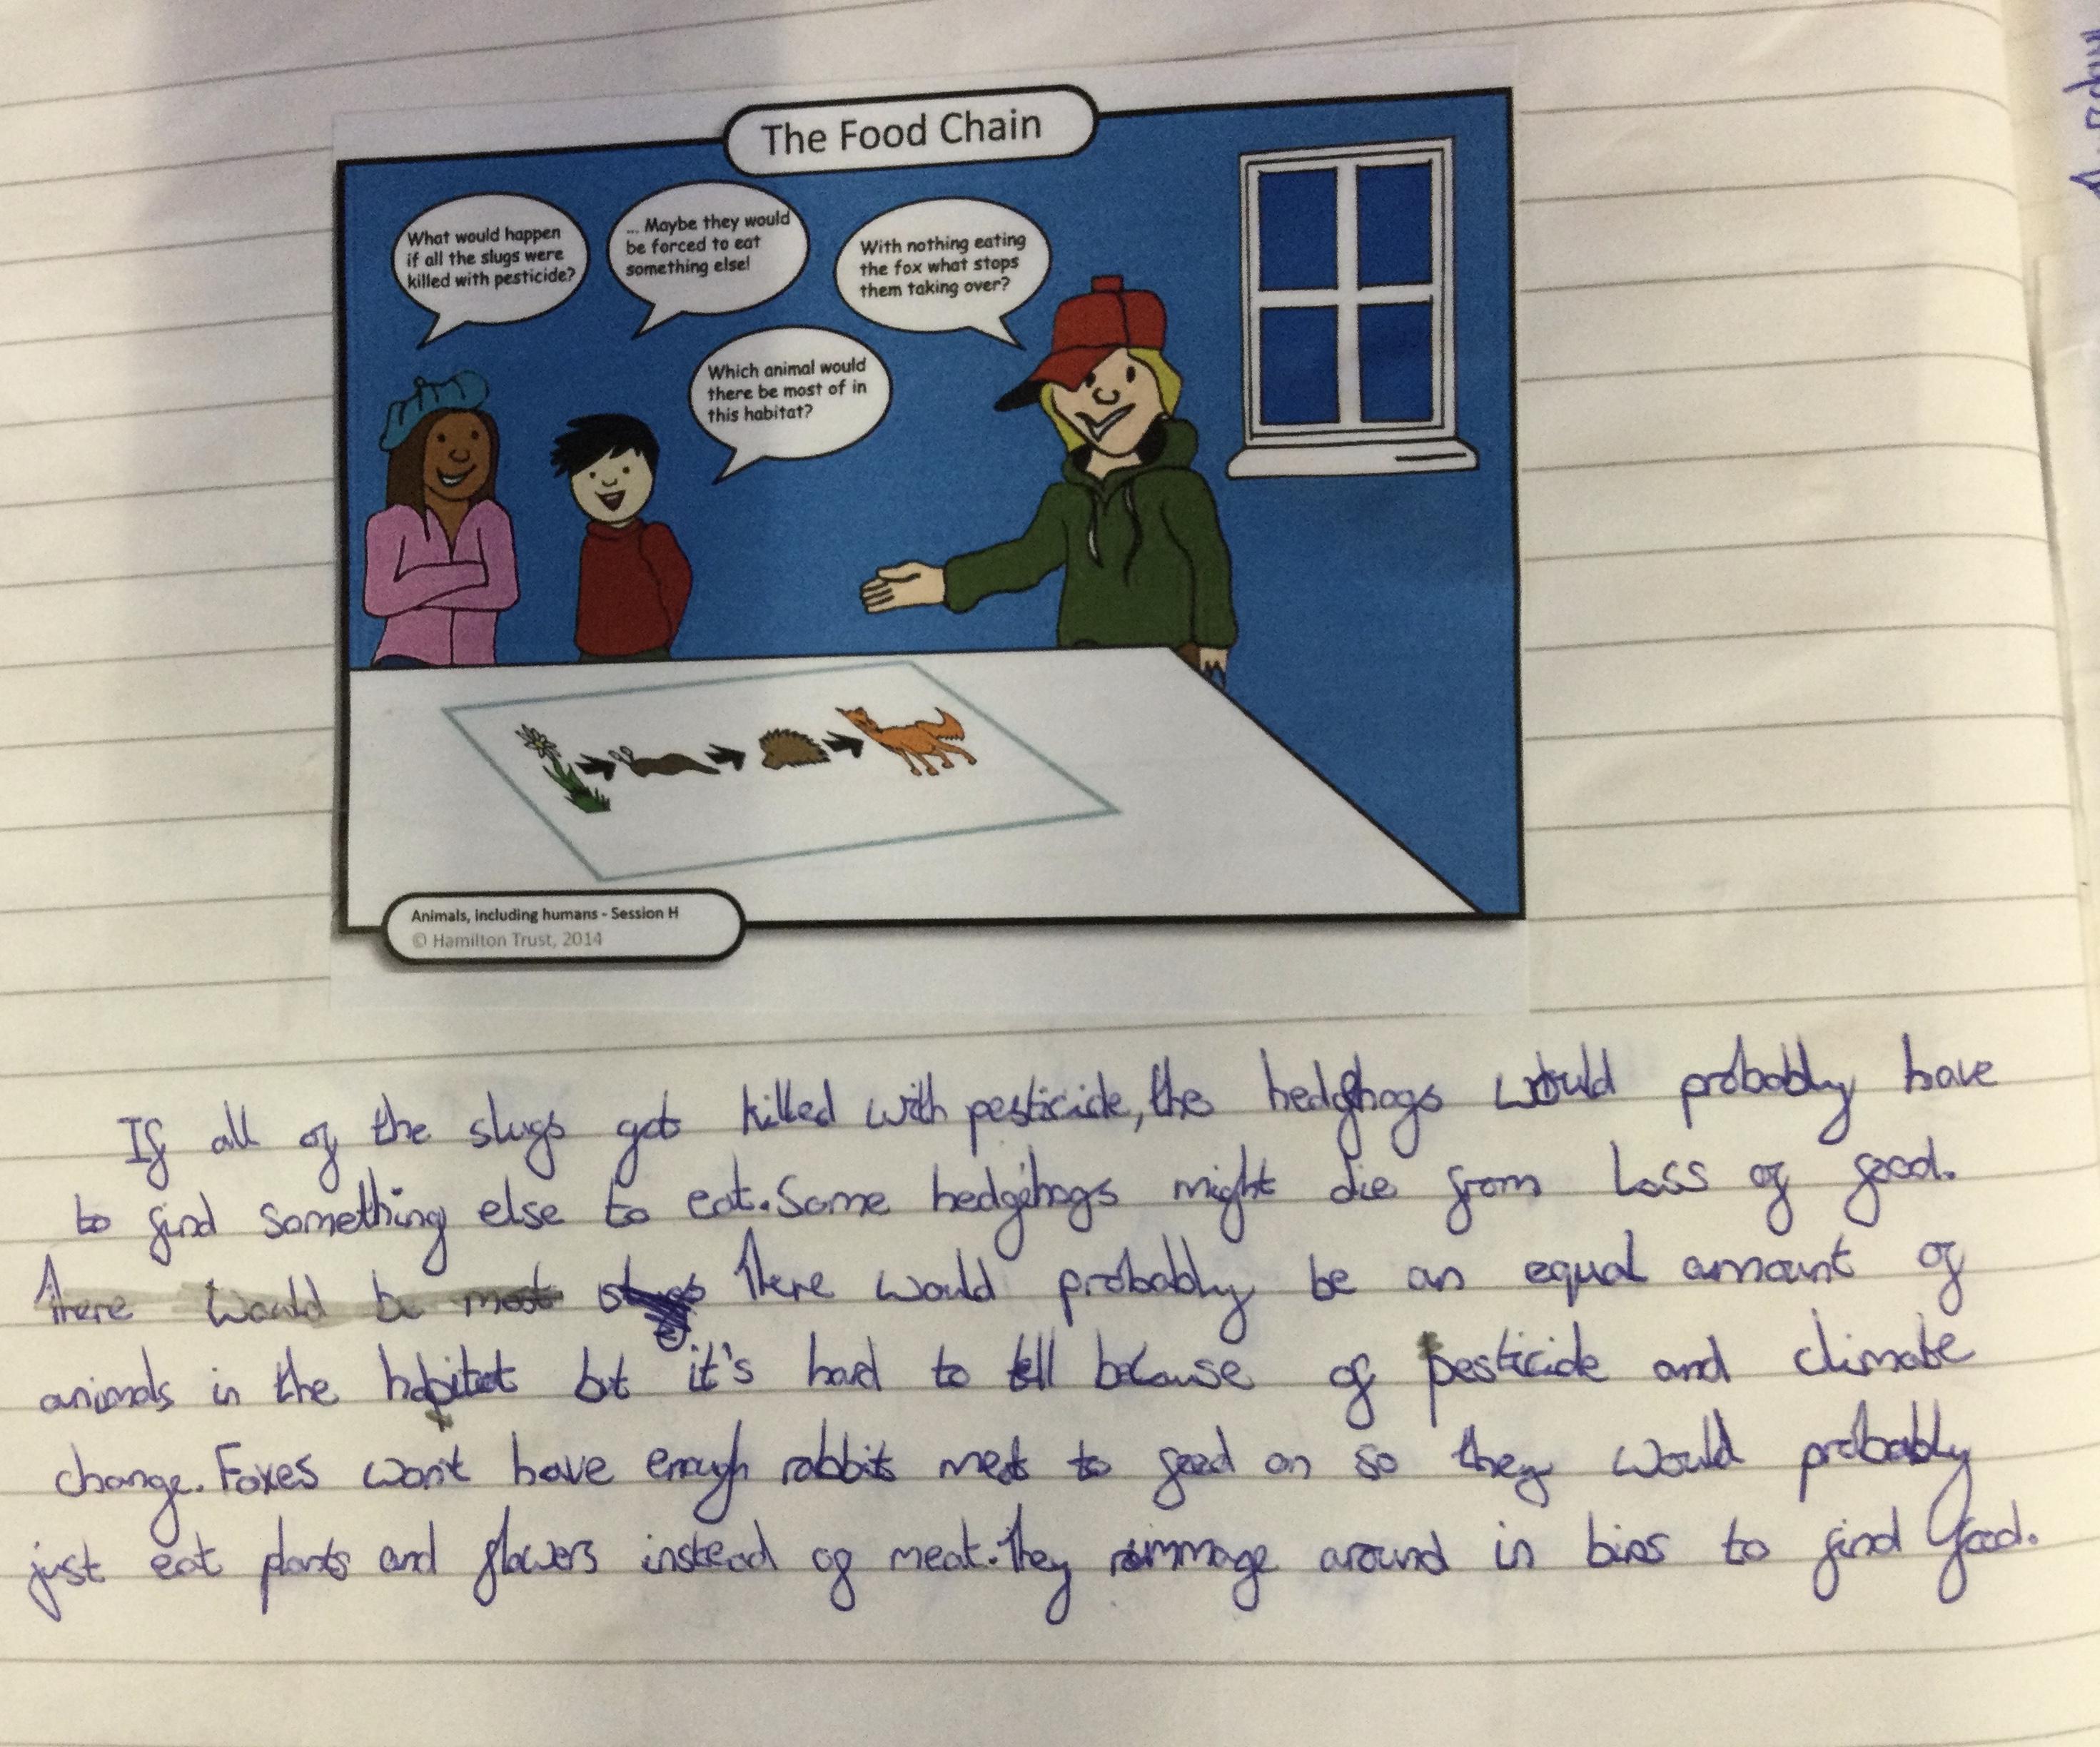 The Food Chain
What would happen
if all the slugs were
killed with pesticide?
... Maybe they would
be forced to eat
something else!
With nothing eating
the fox what stops
them taking over?
Which animal would
there be most of in
this habitat?
Animals, including humans - Session H
© Hamilton Trust, 2014
If all of the slugs got killed with pesticide, the hedghogs would probably have
to find something else to eat. Some hedgehogs might die from Loss of food.
There would be most slugs There would probably be an equal amount of
animals in the habitat but it's hard to tell because of pesticide and climate
change. Foxes won't have enough rabbits meat to feed on so they would probably
just eat plants and flowers instead of meat. They rummage around in bins to find food.